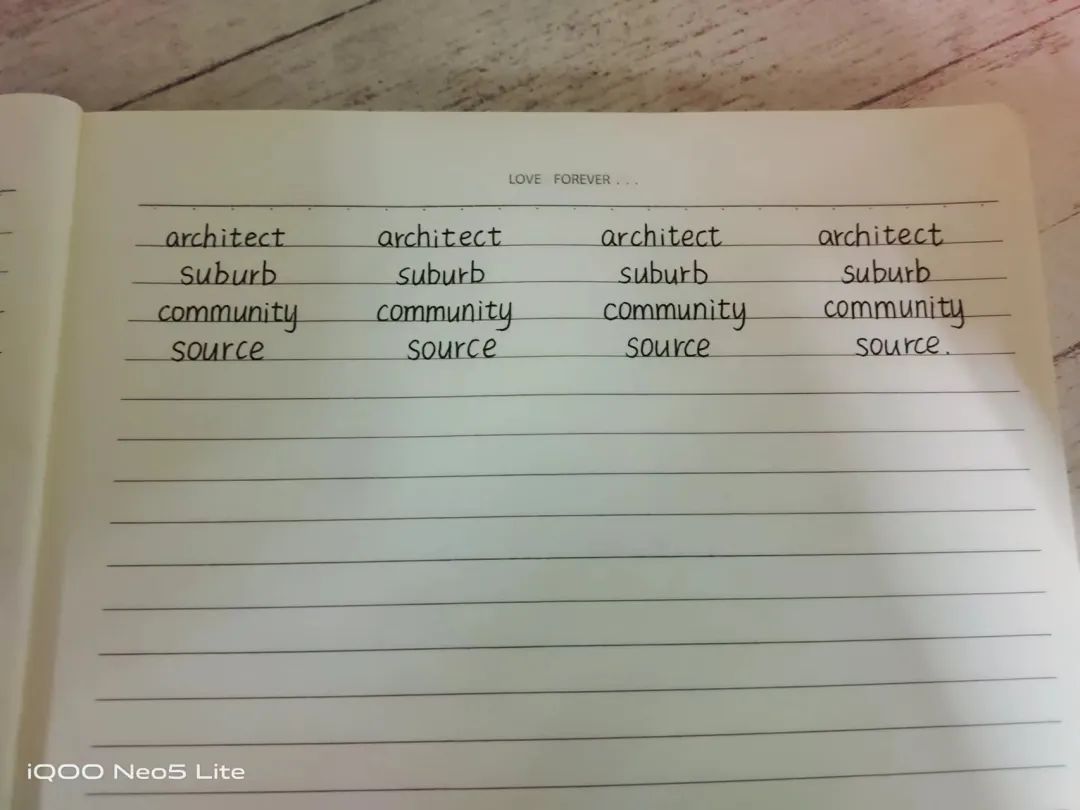 LOVE FOREVER...
architect architect architect architect
suburb suburb suburb suburb
community community community community
source source source source.
iQOO Neo5 Lite